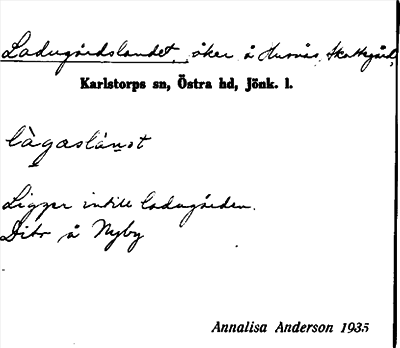 Ladugårdslandet, åker å Husnäs, Skattegård,
Karlstorps sn, Östra hd, Jönk. l.
làgaslánst
Ligger intill ladugården.
Dito å Nyby
Annalisa Anderson 1935